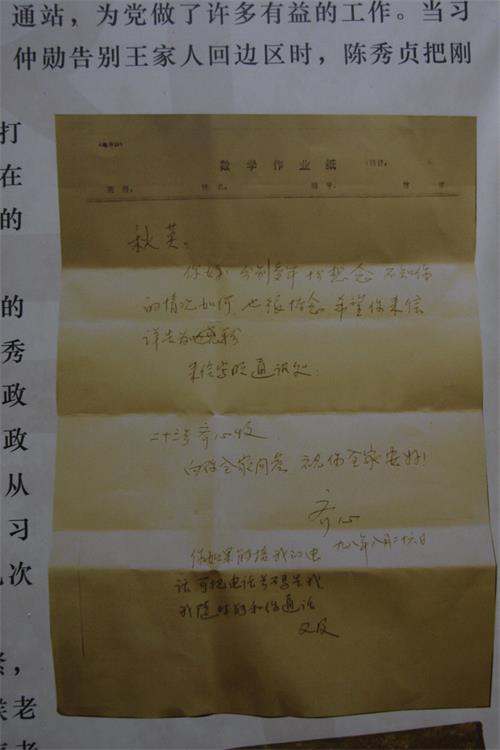 通站，为党做了许多有益的工作。当习
仲勋告别王家人回边区时，陈秀贞把刚
打
在
的
的
秀
政
政
从
习
次
老
数学作业纸
秋英：
你好！分别多年十分想念 不知你
的情况如何 也很惦念 希望你来信
详告为
来信寄
二十二号 齐心收
向你全家问候 祝你全家安好！
齐心
九八年八月二十六日
你如果能接我的电
话 可把电话号码告我
我随时可和你通话
又及